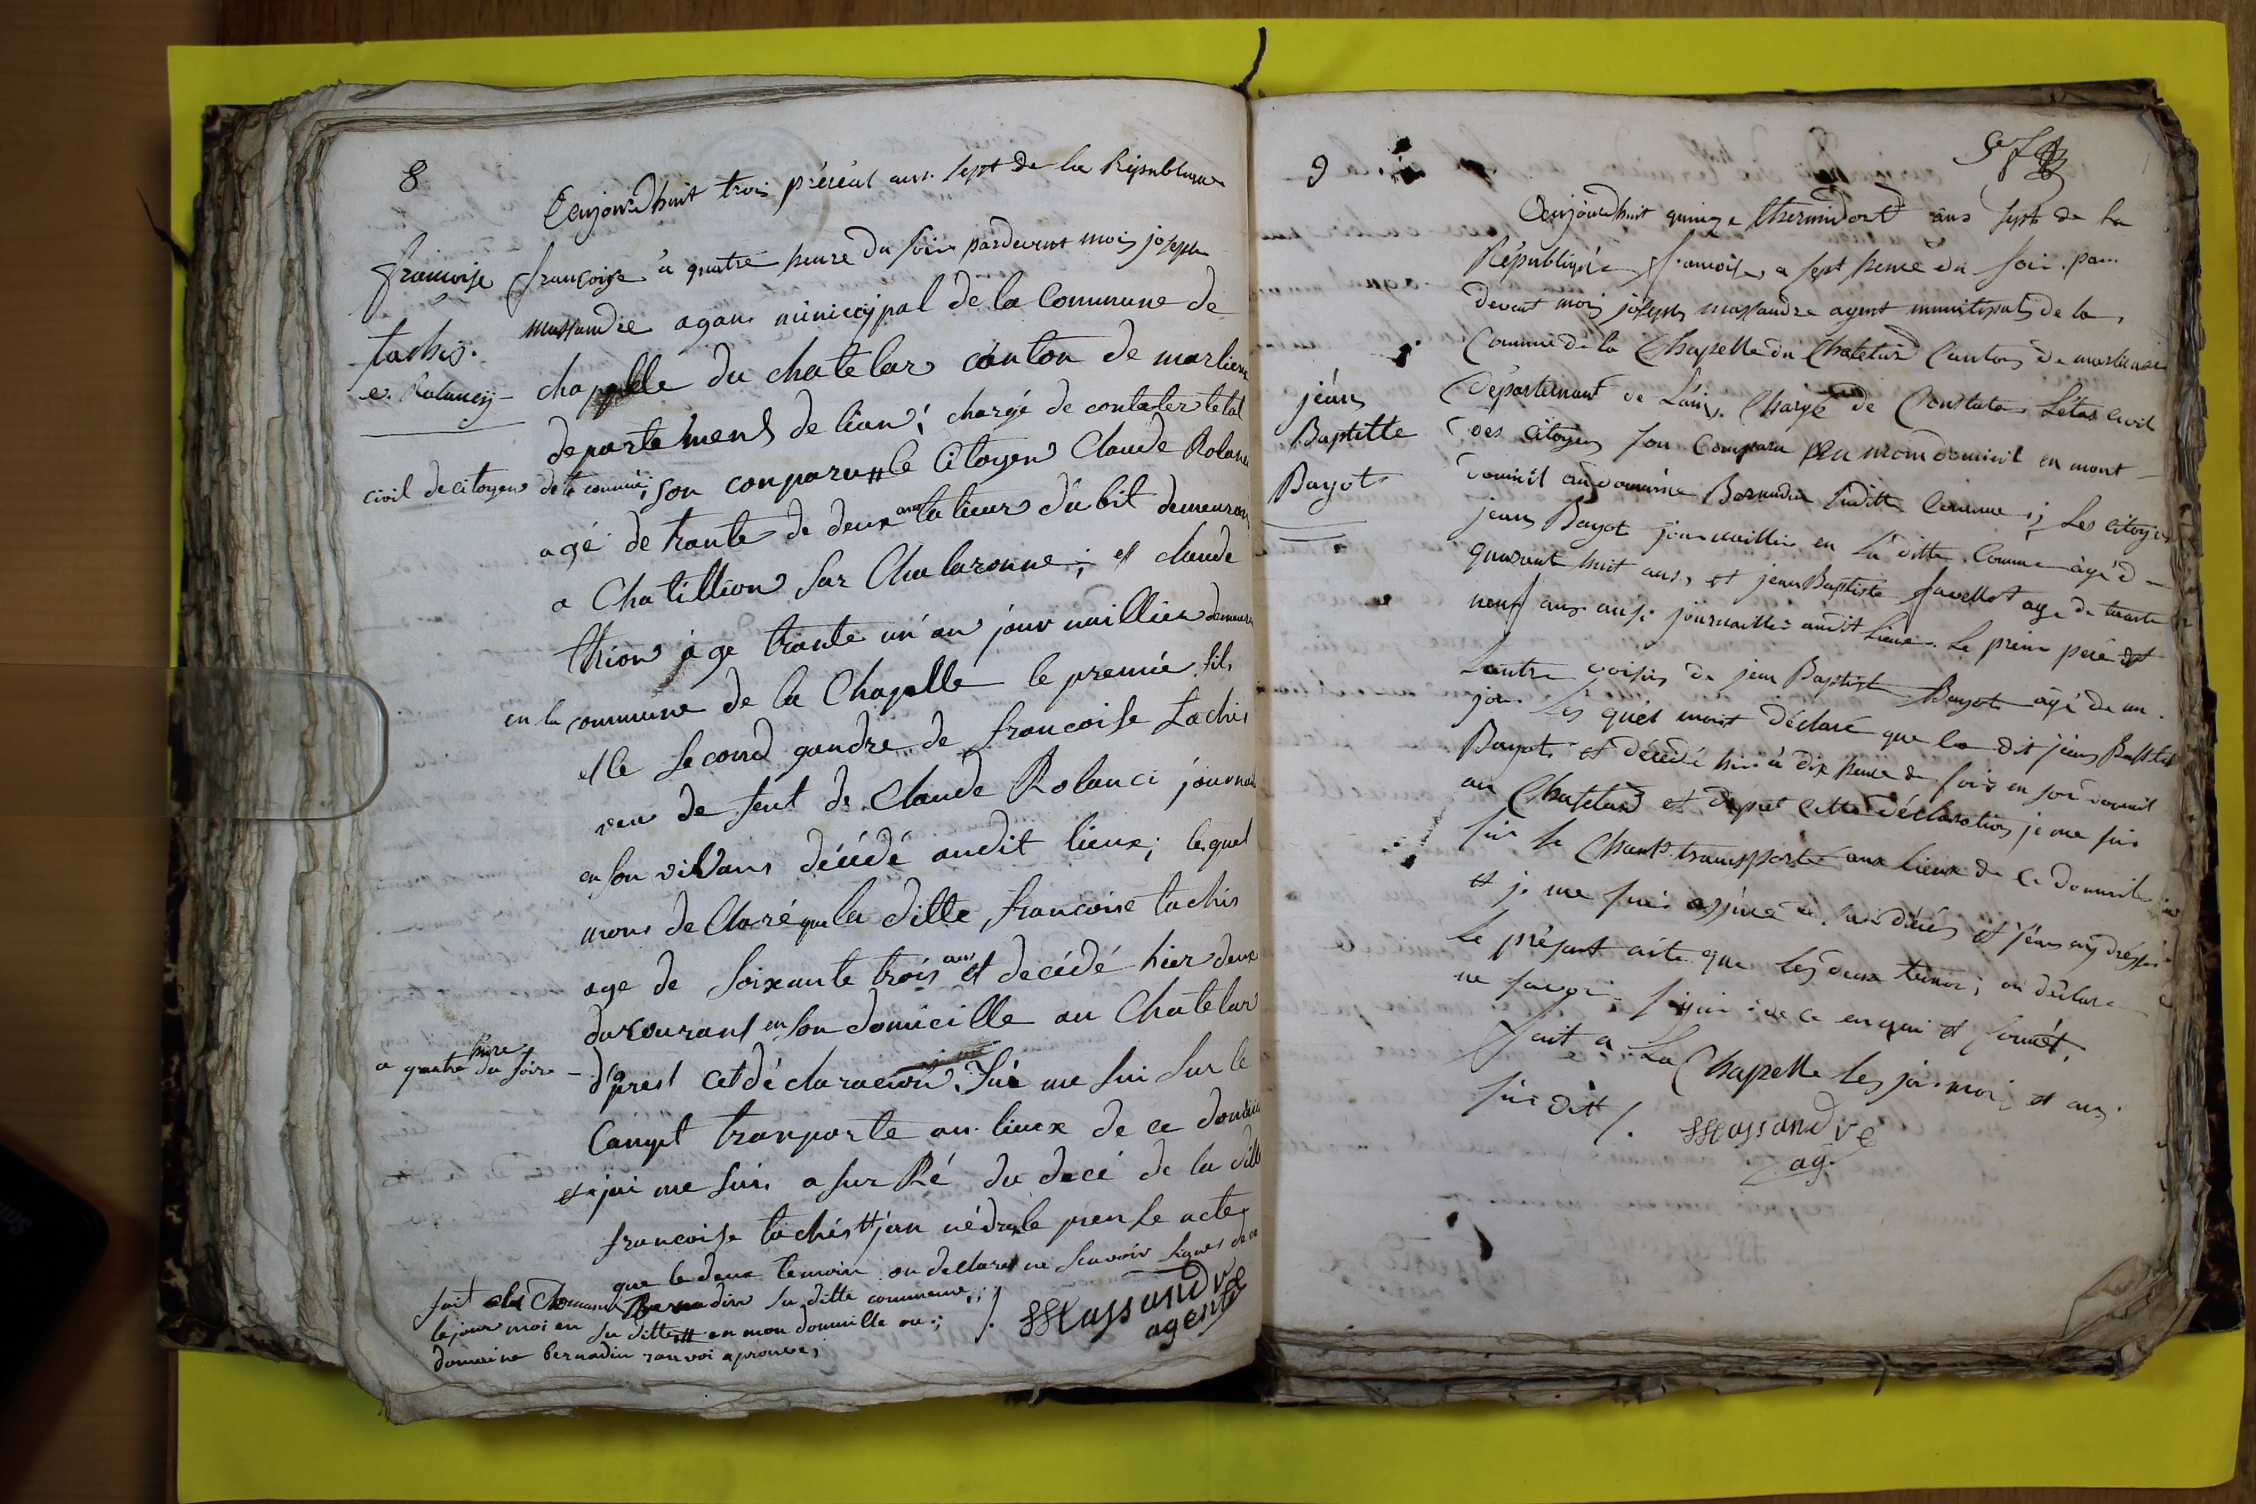 8
aujourdhuit trois préréal ans sept de la Republique
françoise
tachis.
v. Rolancy
françoise a quatre heure du soir pardevent mois joseph
massandre agan municipal de la Commune de
chapelle du chatelar canton de marlieux
departement de lian; chargé de contater letat
civil de citoyens de la commune; son conparu le Citoyen Claude Rolanci
agé de trante de deux ans tatieur dabit demeuran
a Chatillion sur Chalaronne; et claude
thion age trante un an jour naillier demeuran
en la commune de la Chapelle le premié fils
et le second gandre de francoise tachis
veu de feut de Claude Rolanci journa
en son vivans décédé audit lieux; lequel
mons de Claré que la ditte francoise tachis
age de soixante trois ans et decédé hier deux
du courant en son domicille au Chatelar
a quatre heure du soire
d'aprest cet déclaracion Jué me sui sur le
Canpt tranporte au lieux de ce domicil
et jai me suis a sur Ré du decé de la ditte
francoise tachis jan né dresé le prense acte
que le deux temoin on declaré ne scavoir signes de ce
fait Bernadin su ditte commune;
le jour moi en su ditte en mon domicille au;
domaine bernadin ranvoi aprouve,
Massandre
agent
9
jean
Baptiste
Bayot
aujourdhuit quinze thermidort ans sept de la
République francoise a sept heure du soir par
devent moi joseph massandre agent municipal de la
Commune de la Chapelle du Chatelard Canton de marlieux
Département de Lain, Chargé de Constater L'état civil
des citoyen son Comparu en mon domicil en mont
domicil au domaine Bernadin suditte Commune; Les citoyen
jean Bayot journaillier en La ditte Commune agé d
quarant huit ans, et jean Baptiste favellot age de trante
neuf ans ausi journaillier audit Lieux. Le prem pere et
Lautre voisin de jean Baptiste Bayot agé de un
jour Les quél mont déclaré que le dit jean Baptiste
Bayot et décédé hier à dix heure du soir en son domicil
au Chatelard et daprest cette déclaration je me suis
sur le Champ transporté aux lieux de ce domicil
et je me suis assuré de son décés et j'en ay dréssé
Le présant acte que les deux temoin; on déclaré
ne savoir signier de ce enqui et somét,
fait a La Chapelle les jour moi et ans
sus dit /.
Massandre
ag.